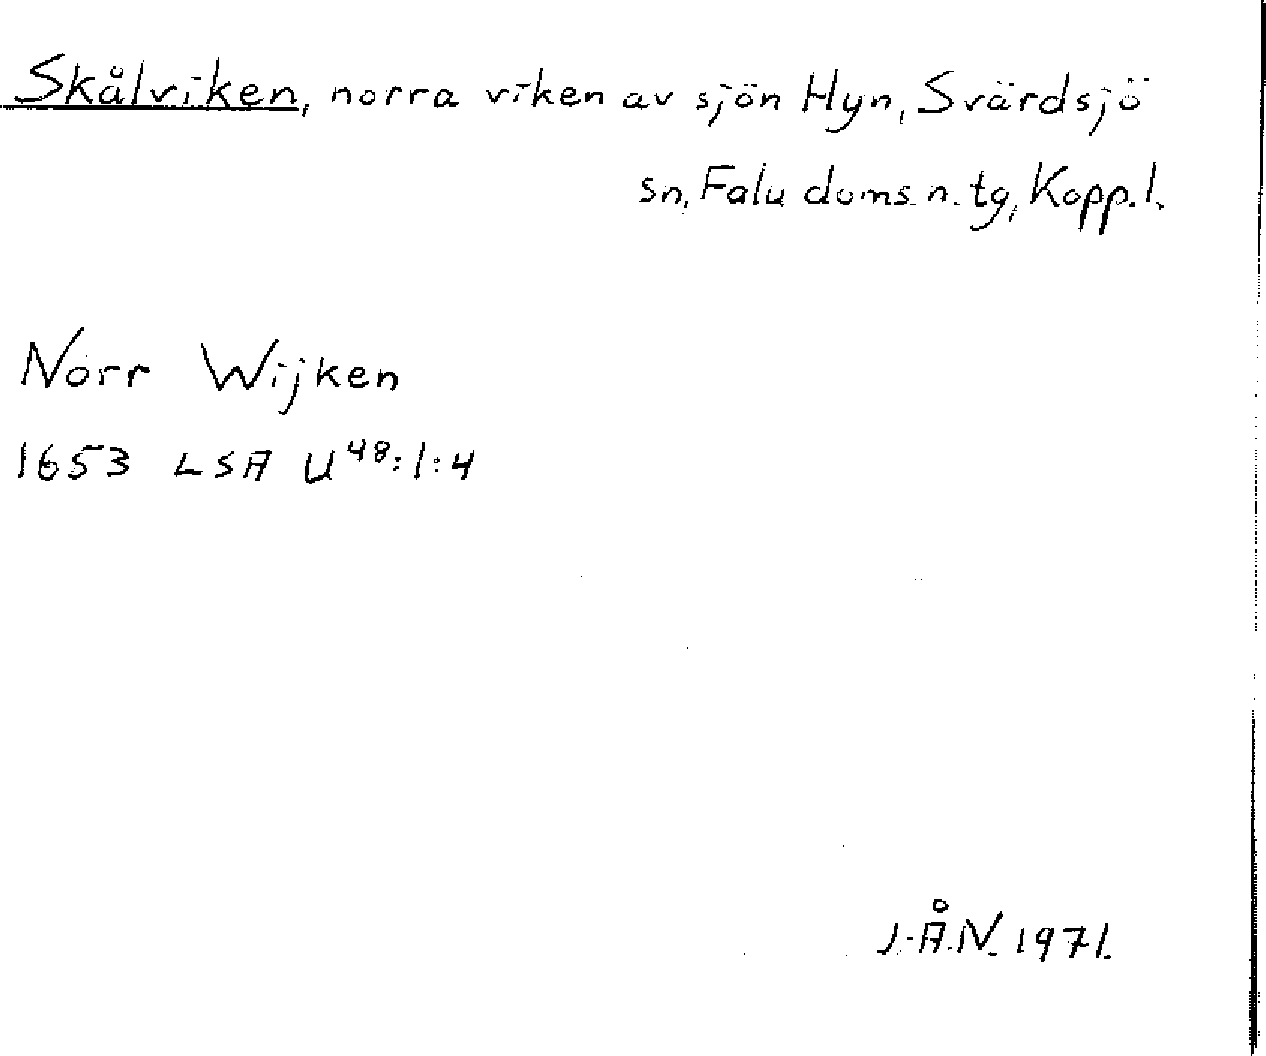 Skålviken, norra viken av sjön Hyn, Svärdsjö
sn, Falu doms. n. tg, Kopp. l.
Norr Wijken
1653 LSA U48:1:4
J-Å.N. 1971.